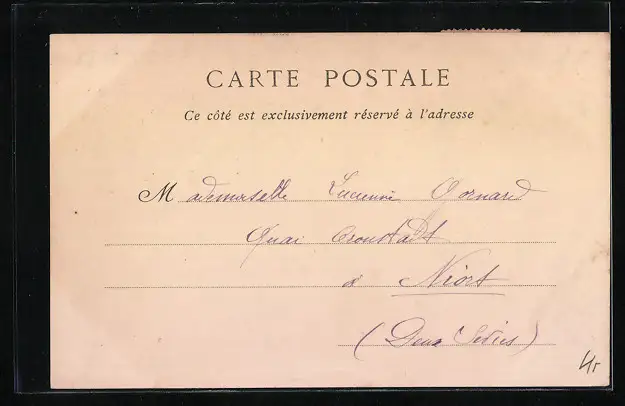 CARTE POSTALE
Ce côté est exclusivement réservé à l'adresse
Mademoiselle Lucienne
Quai Cronstadt
à Niort
(Deux Sèvres)